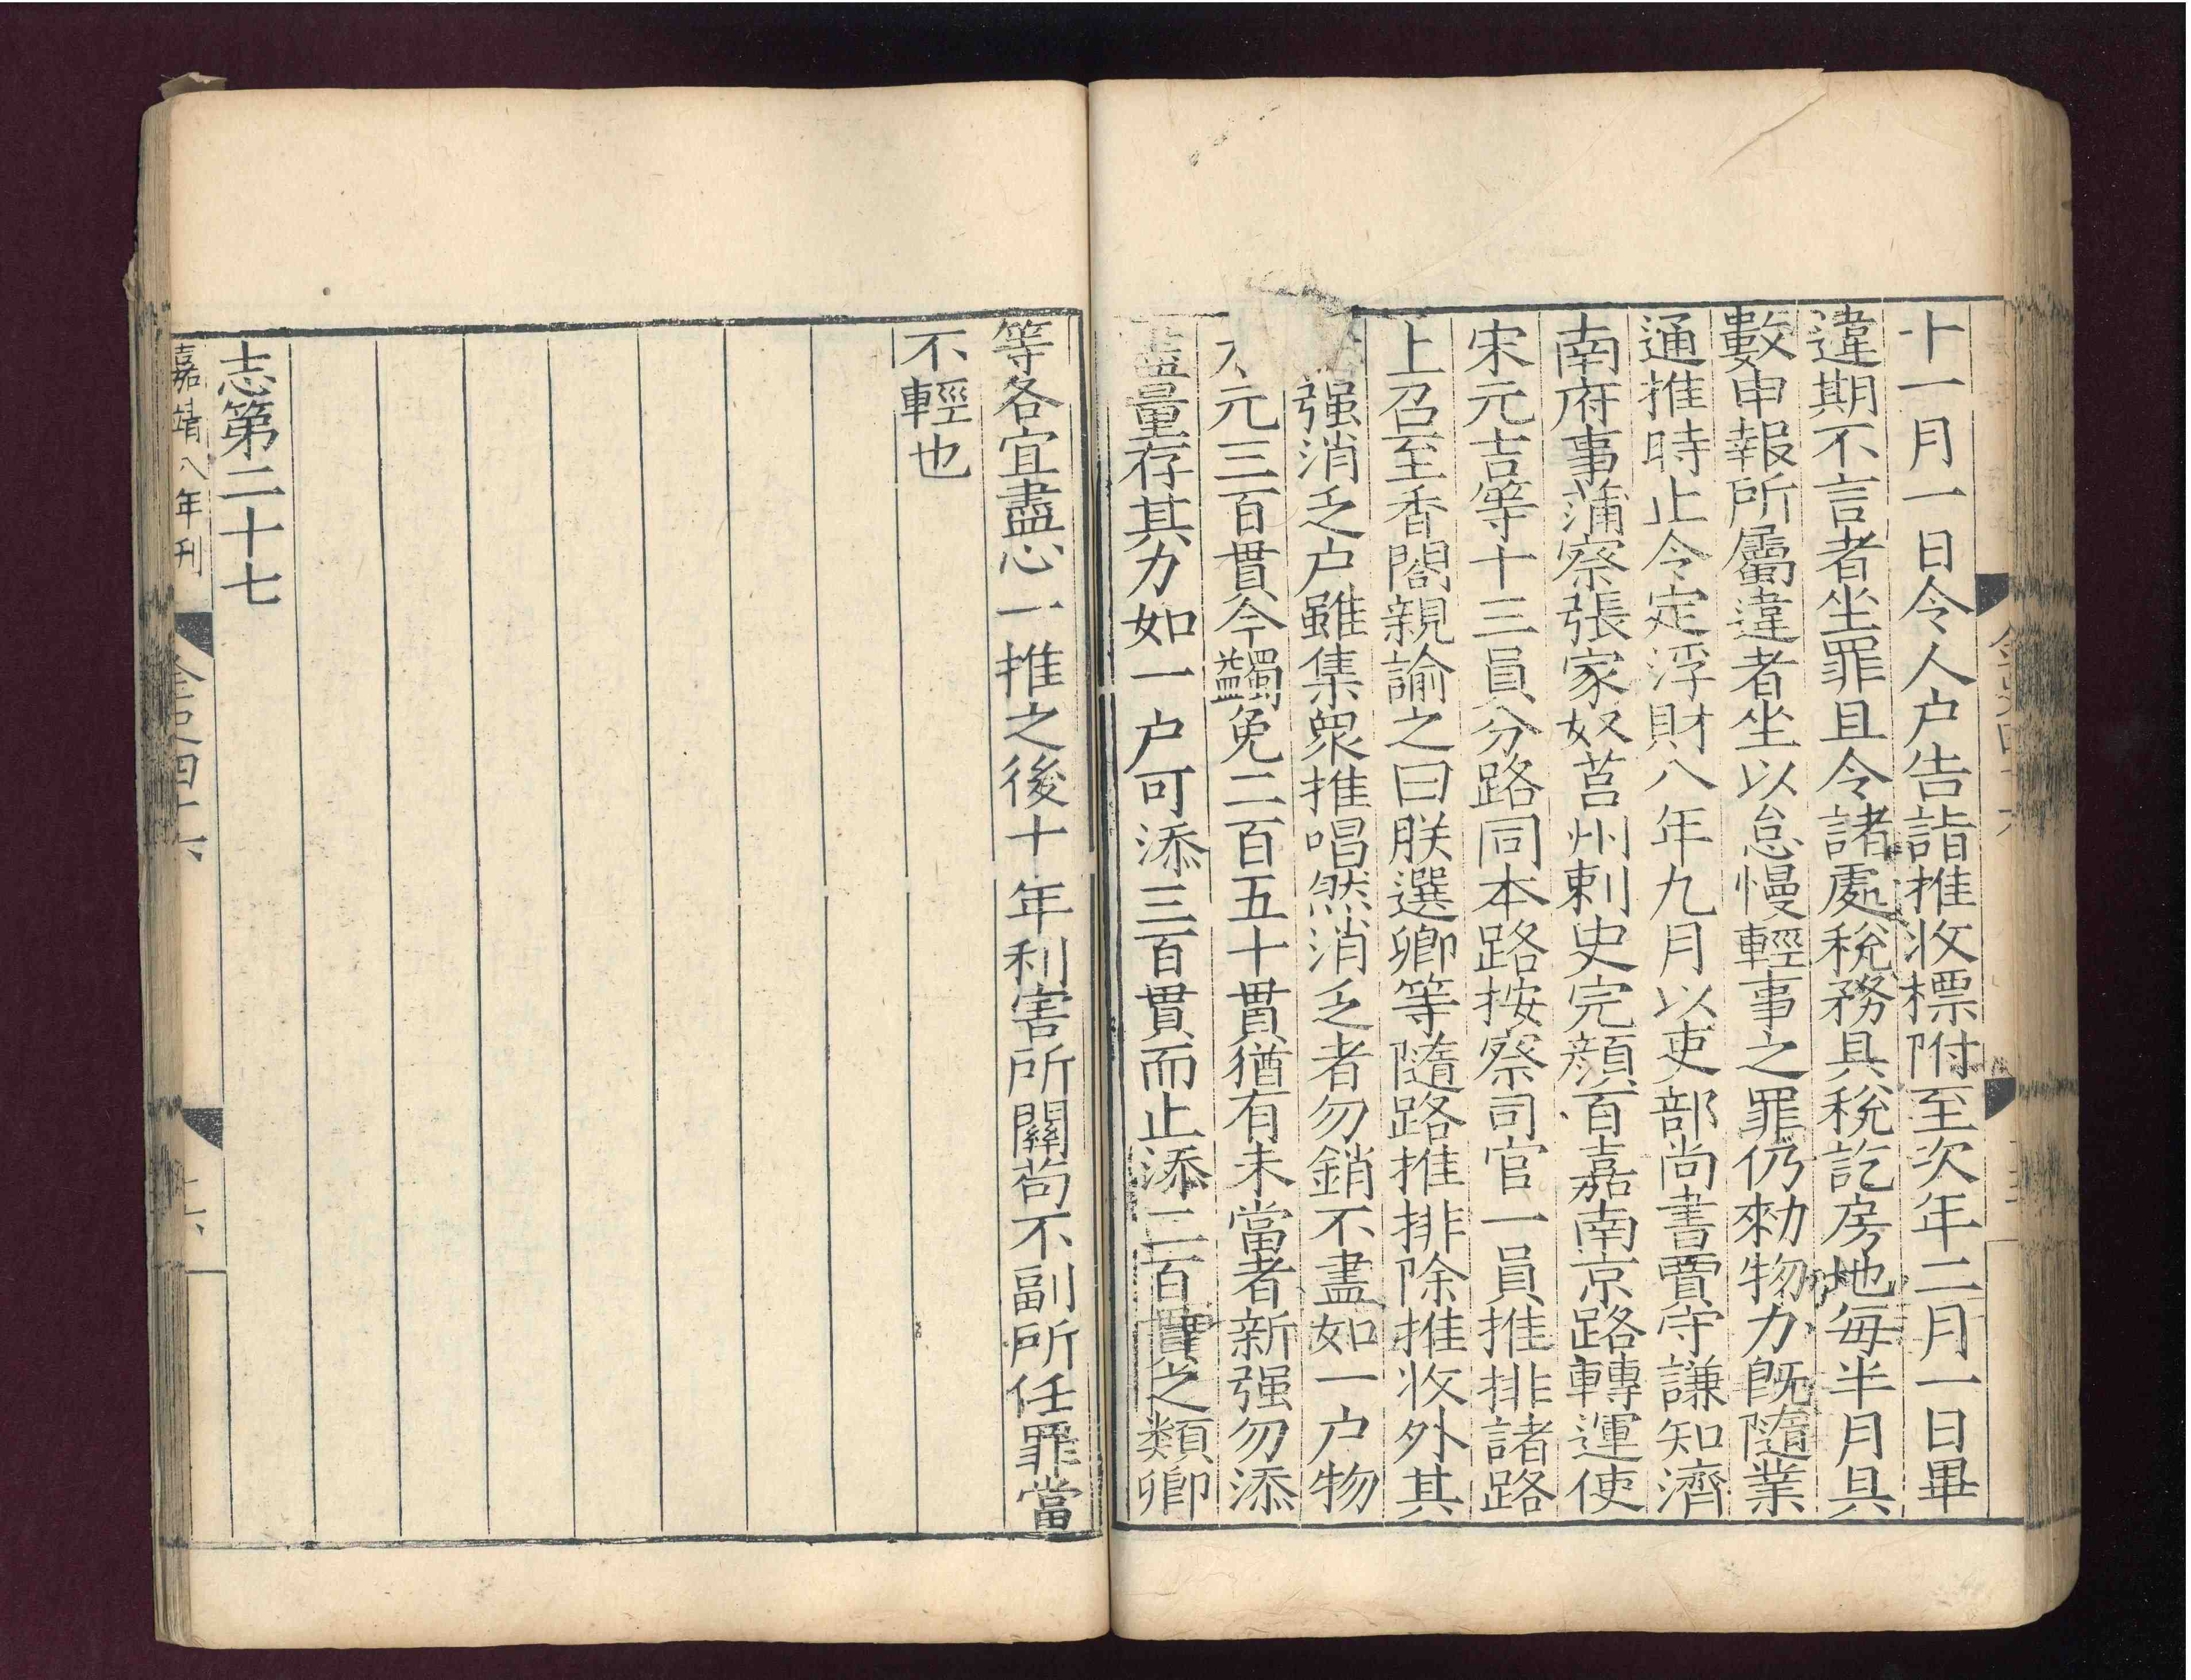 十一月一日令人户告詣推收標附至次年二月一日畢
違期不言者坐罪且令諸處税務具税訖房地每半月具
數申報所屬違者坐以怠慢輕事之罪仍勑物力旣隨業
通推時止令定浮財八年九月以吏部尚書賈守謙知濟
南府事蒲察張家奴莒州刺史完顔百嘉南京路轉運使
宋元吉等十三員分路同本路按察司官一員推排諸路
上召至香閤親諭之曰朕選卿等隨路推排除推收外其
强消乏户雖集衆推唱然消乏者勿銷不盡如一户物
元三百貫今蠲免二百五十貫猶有未當者新强勿添
盡量存其力如一户可添三百貫而止添二百貫之類卿
等各宜盡心一推之後十年利害所關苟不副所任罪當
不輕也
志第二十七
嘉靖八年刊
金史四十六